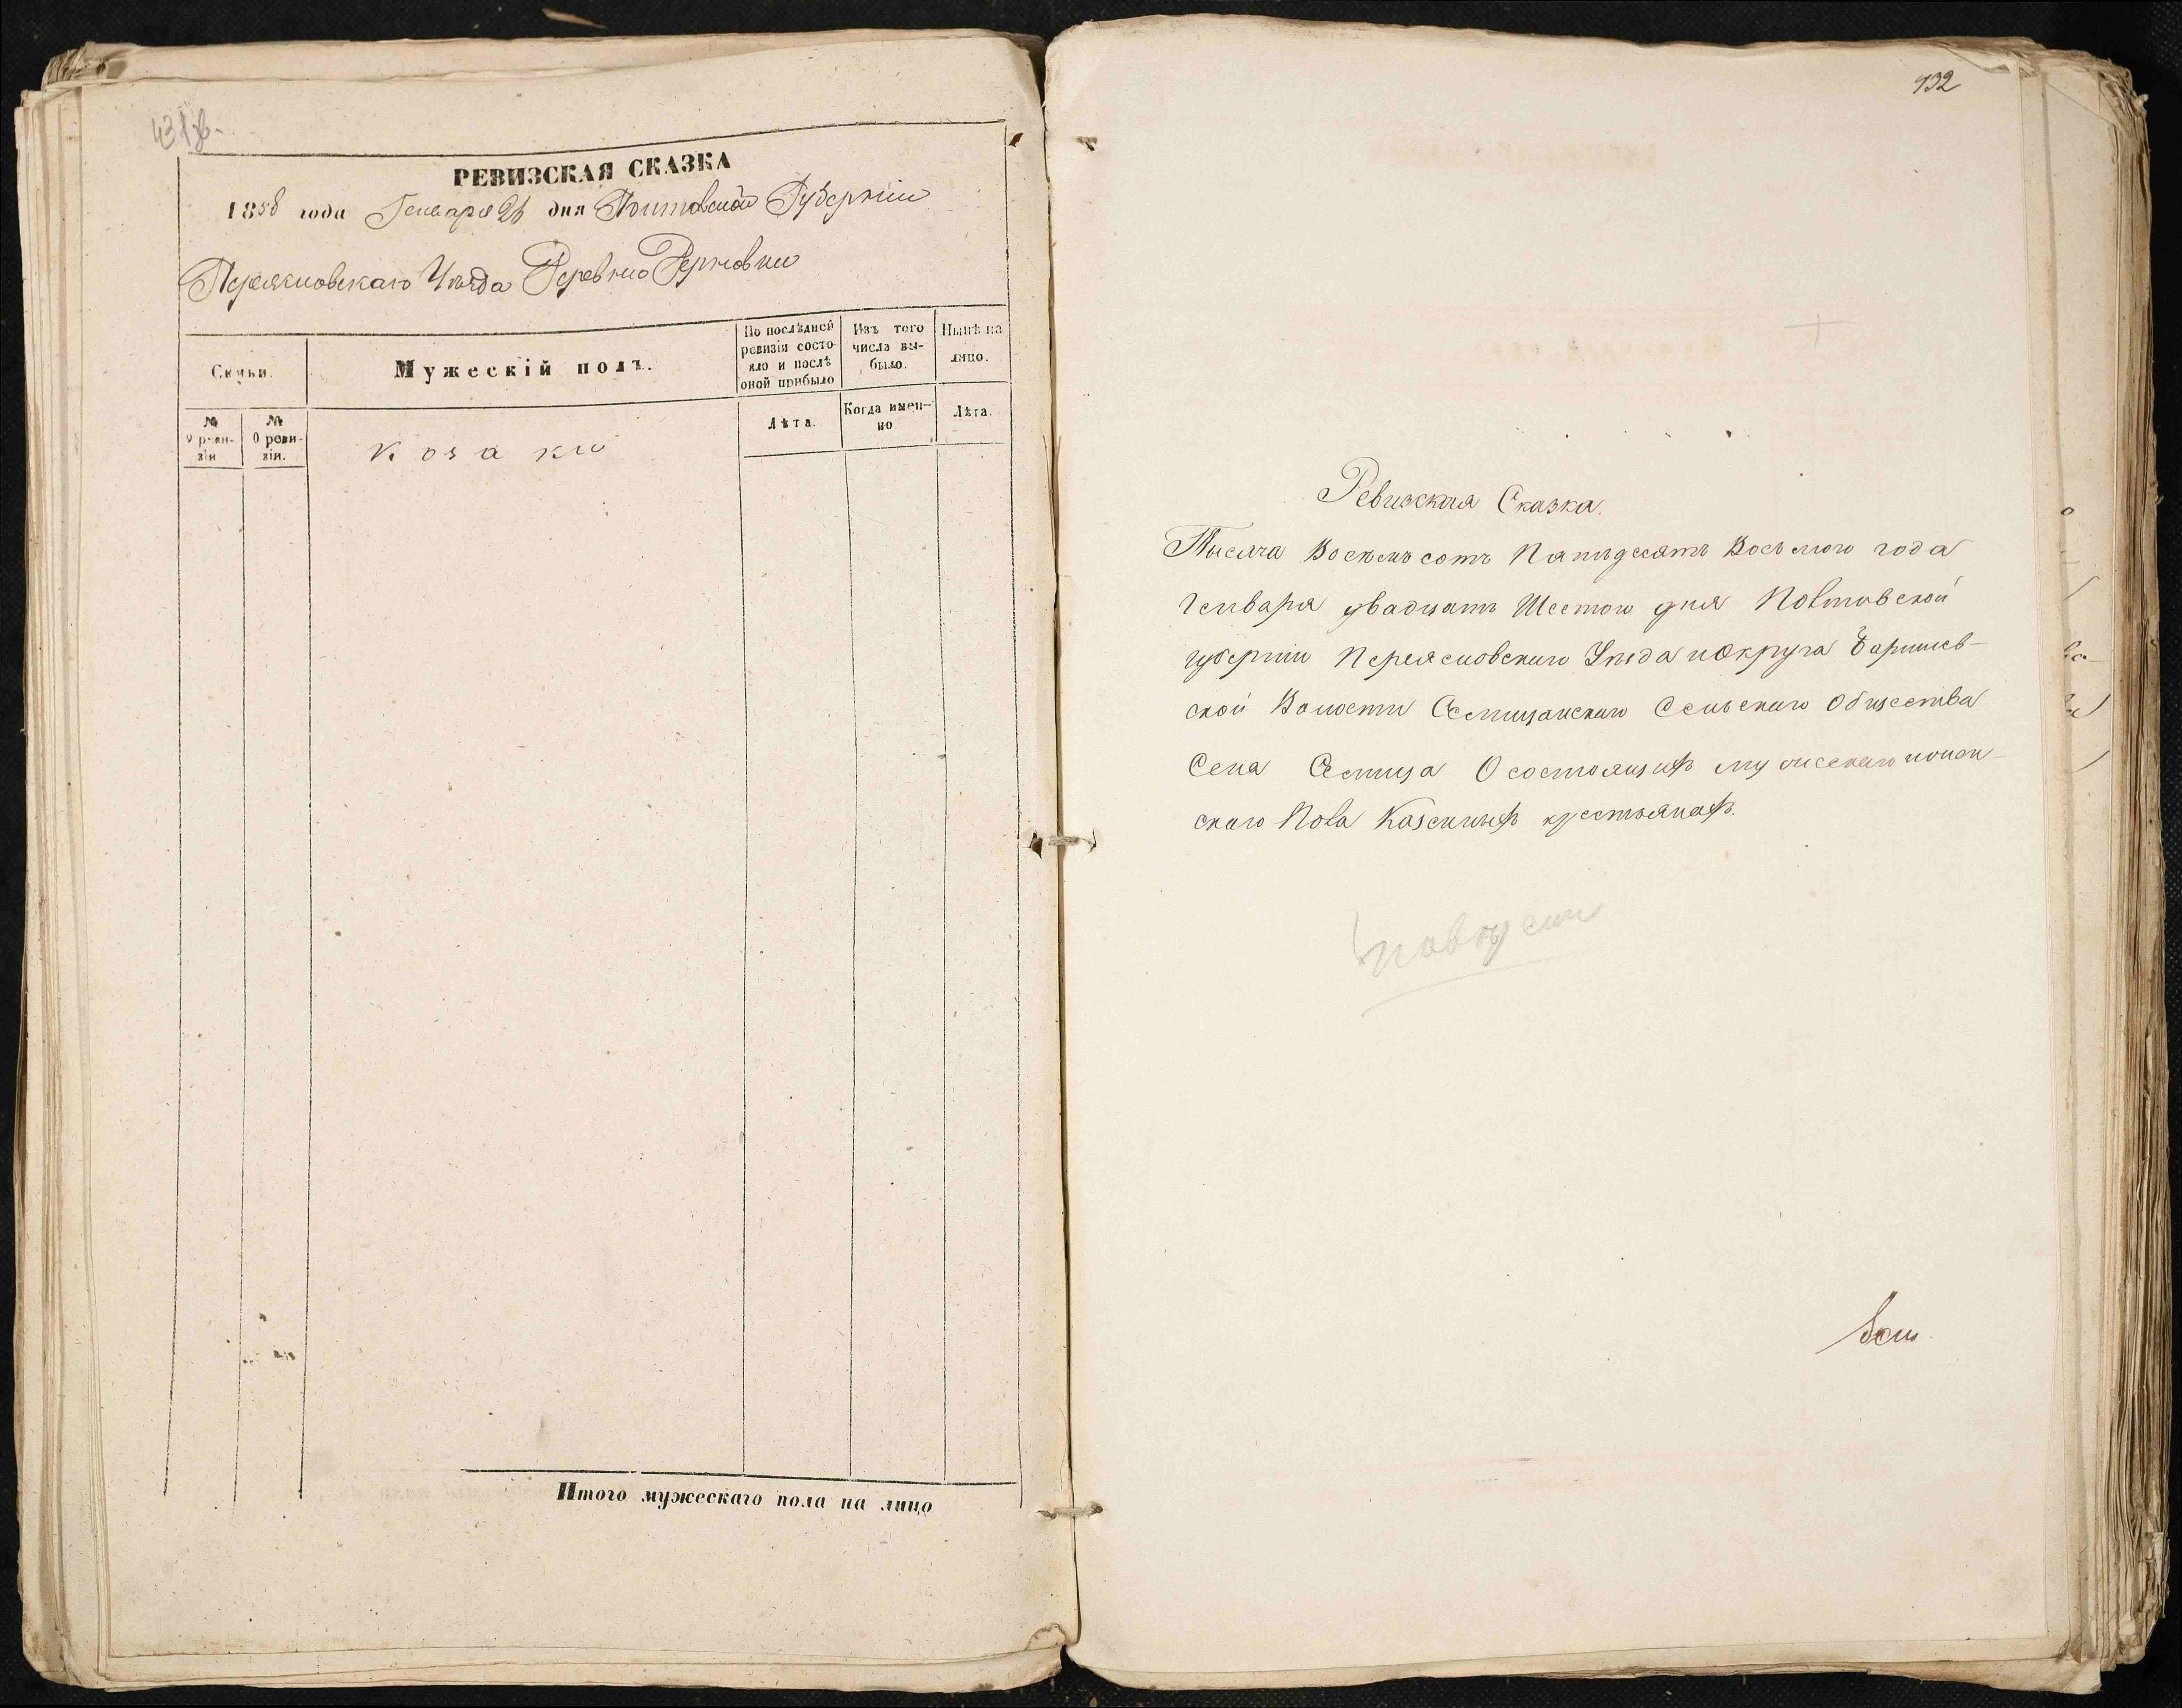 РЕВИЗСКАЯ СКАЗКА
1858 года Генваря 26 дня Полтавской Губернии
Переясловскаго Уезда Деревни
Семьи.
Мужескій полъ.
По послѣдней
ревизіи состо-
яло и послѣ
оной прибыло
Изъ того
числа вы-
было.
Нынѣ на
лицо.
№
9 реви-
зіи
№
0 реви-
зіи.
Козаки
Лѣта.
Когда имен-
но
Лѣта.
Итого мужескаго пола на лицо
432
Ревизская Сказка.
Тысяча Восемьсотъ Пятьдесятъ Восьмого года
Генваря двадцать Шестого дня Полтавской
губернии Переясловского Уезда и Округа Баришев-
ской Волости Селищанского Сельского Общества
Села Селища О состоящихъ мужескаго и жен-
скаго Пола Казенныхъ крестьянахъ.